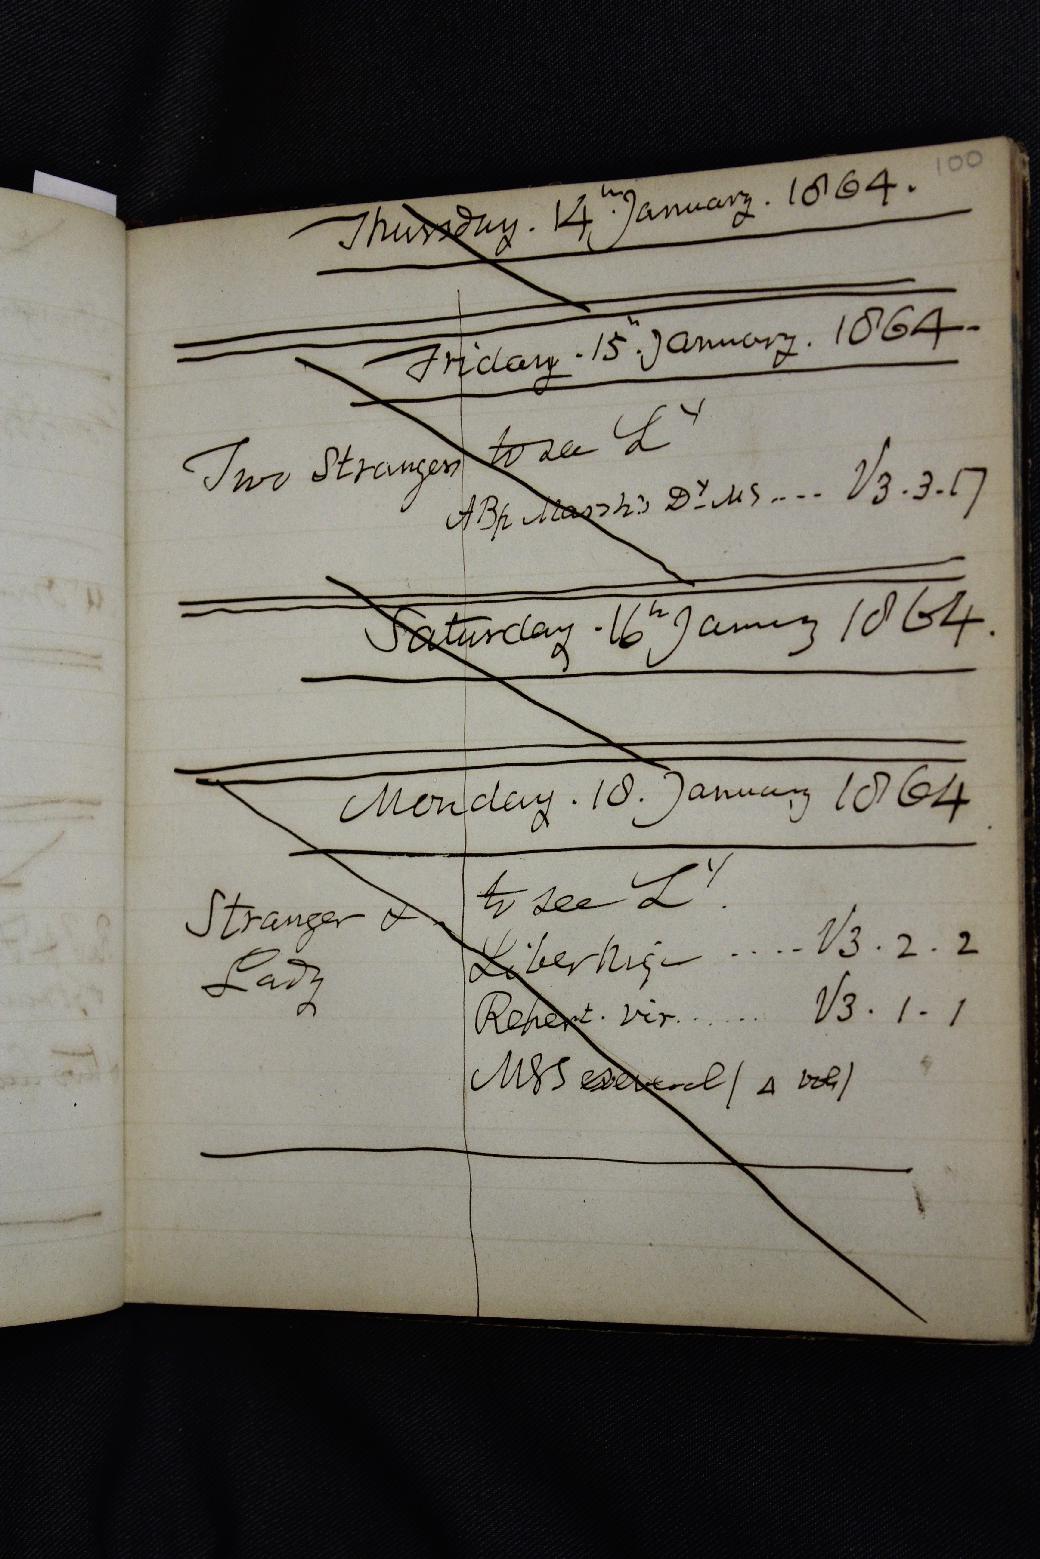 100
Thursday. 14th January. 1864.
Friday. 15h January. 1864.
Two Strangers to see Ly
ABp Marsh's Dy MS .... V3.3.17
Saturday. 16h January 1864.
Monday. 18. January 1864
Stranger & to see Ly.
Lady
Liber Nig .... V3.2.2
Repert. vir....... V3.1.1
MSS several (